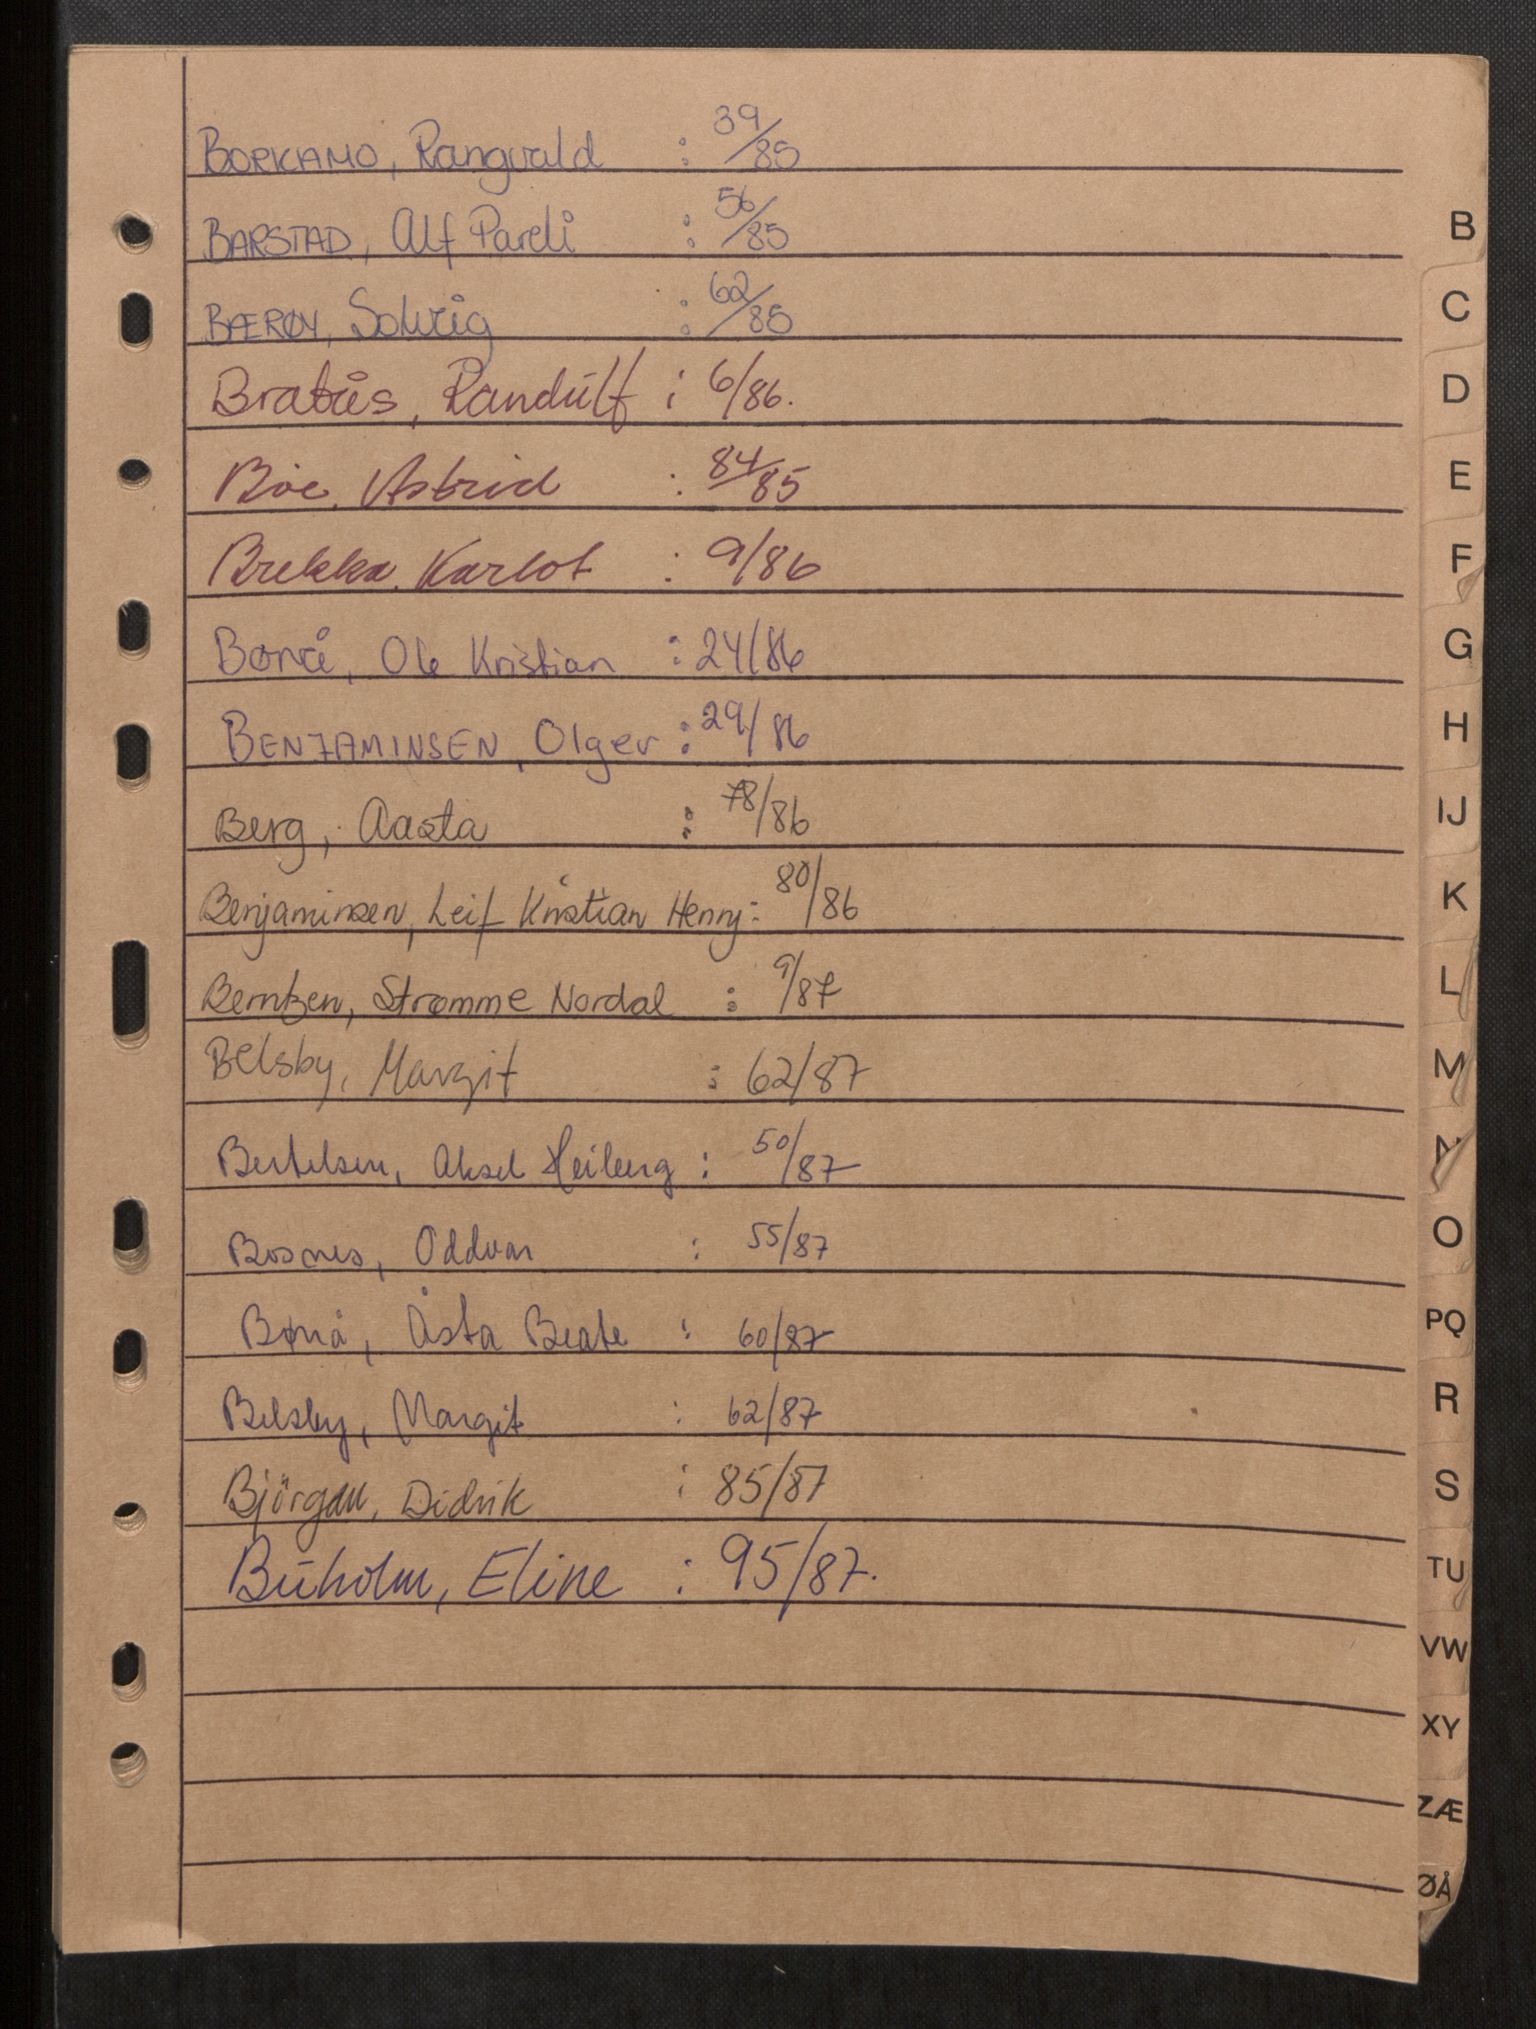 BORKAMO, Rangvald : 39/85
BARSTAD, Alf Pareli : 56/85
BÆRØY, Solveig : 62/85
Bratås, Randulf : 6/86.
Boe, Astrid : 84/85
Brekka, Karlot : 9/86
Bønå, Ole Kristian : 24/86
BENJAMINSEN, Olger : 29/86
Berg, Aasta : 78/86
Benjaminsen, Leif Kristian Henry : 80/86
Berntzen, Strømme Nordal : 9/87
Belsby, Margit : 62/87
Bertelsen, Aksel Heiberg : 50/87
Bosnes, Oddvar : 55/87
Bønå, Åsta Beate : 60/87
Belsby, Margit : 62/87
Björgan, Didrik : 85/87
Buholm, Eline : 95/87.
B
C
D
E
F
G
H
IJ
K
L
M
N
O
PQ
R
S
TU
VW
XY
ZÆ
ØÅ